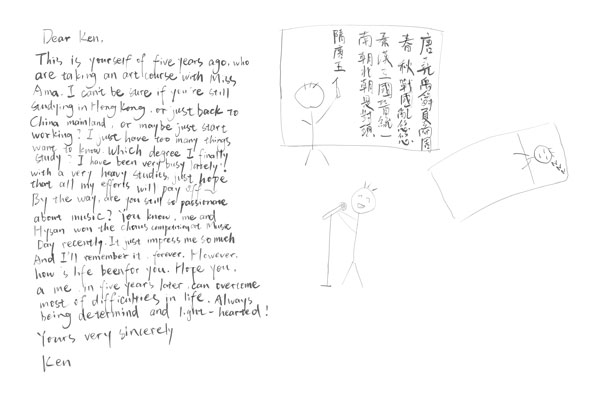 Dear Ken,
This is yourself of five years ago, who
are taking an art course with Miss
Ama. I can't be sure if you're still
studying in Hong Kong, or just back to
China mainland, or maybe just start
working? I just have too many things
want to know. Which degree I finally
study? I have been very busy lately!
with a very heavy studies, just hope
that all my efforts will pay off
By the way, are you still so passionate
about music? You know, me and
Hysan won the chorus competition at Music
Day recently. It just impress me so much
And I'll remember it forever. However,
how's life been for you. Hope you,
a me in five years later can overcome
most of difficulties in life. Always
being determind and light-hearted!
Yours very sincerely
Ken
唐堯虞舜夏商周
春秋戰國亂悠悠
秦漢三國晉統一
南朝北朝是對頭
隋唐五